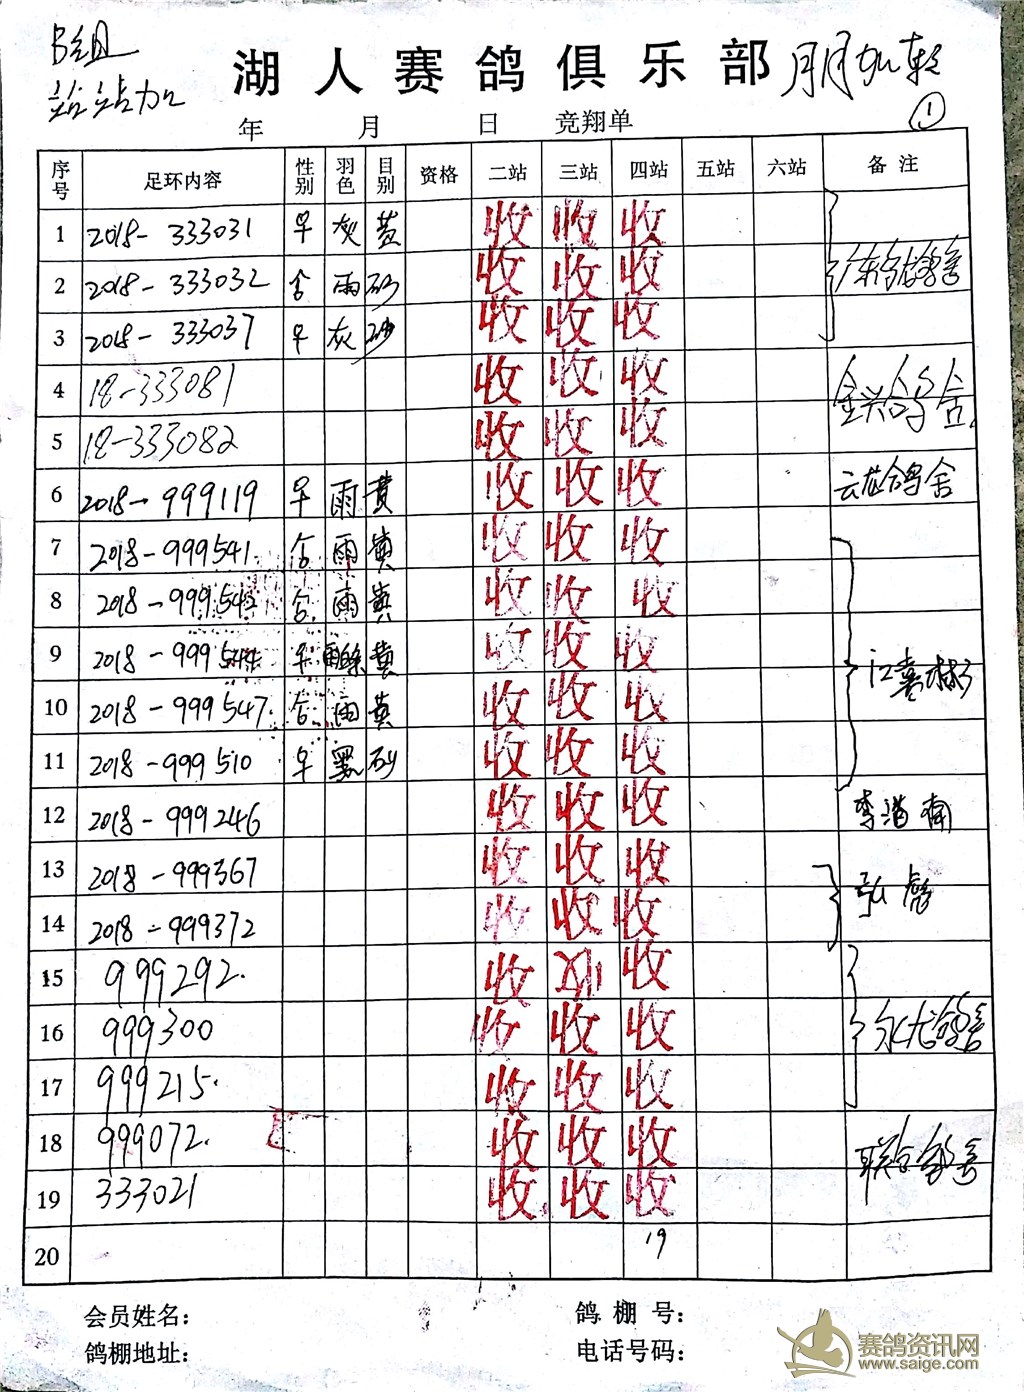 B组
站站加
湖人赛鸽俱乐部
①
年 月 日 竞翔单
序号 足环内容 性别 羽色 目别 资格 二站 三站 四站 五站 六站 备注
1 2018-333031 早 灰 黄 收 收 收
2 2018-333032 合 雨 砂 收 收 收
3 2018-333037 早 灰 砂 收 收 收
4 18-333081 收 收 收 金兴鸽舍
5 18-333082 收 收 收
6 2018-999119 早 雨 黄 收 收 收 云龙鸽舍
7 2018-999541 合 雨 黄 收 收 收
8 2018-999542 合 雨 黄 收 收 收
9 2018-999544 早 黄 收 收 收 江喜彬
10 2018-999547 合 雨 黄 收 收 收
11 2018-999510 早 黑 砂 收 收 收
12 2018-999246 收 收 收 李
13 2018-999367 收 收 收
14 2018-999372 收 收 收
15 999292 收 收 收
16 999300 收 收 收 永龙鸽舍
17 999215 收 收 收
18 999072 收 收 收 联合鸽舍
19 333021 收 收 收
20 19
会员姓名： 鸽棚号：
鸽棚地址： 电话号码：
赛鸽资讯网
www.saige.com